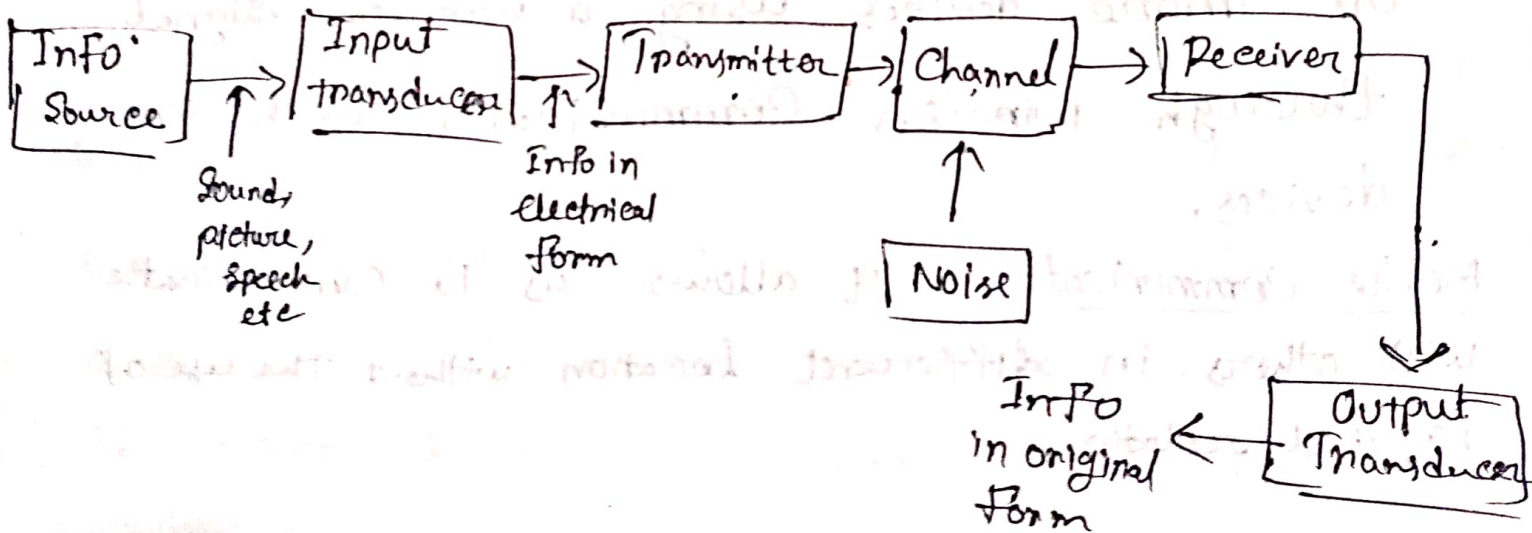 Info
Source
Input
transducer
Transmitter
Channel
Receiver
Sound,
picture,
speech
etc
Info in
electrical
form
Noise
Output
Transducer
Info
in original
form